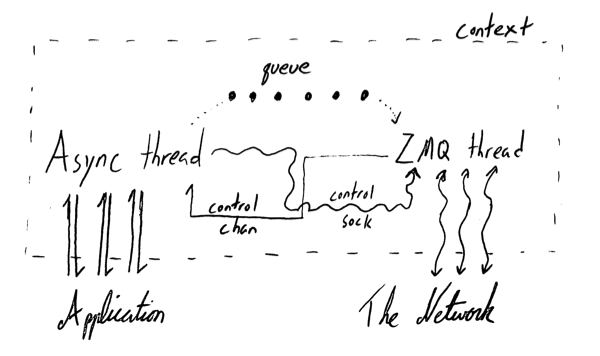 context
queue
Async thread
ZMQ thread
control
chan
control
sock
Application
The Network